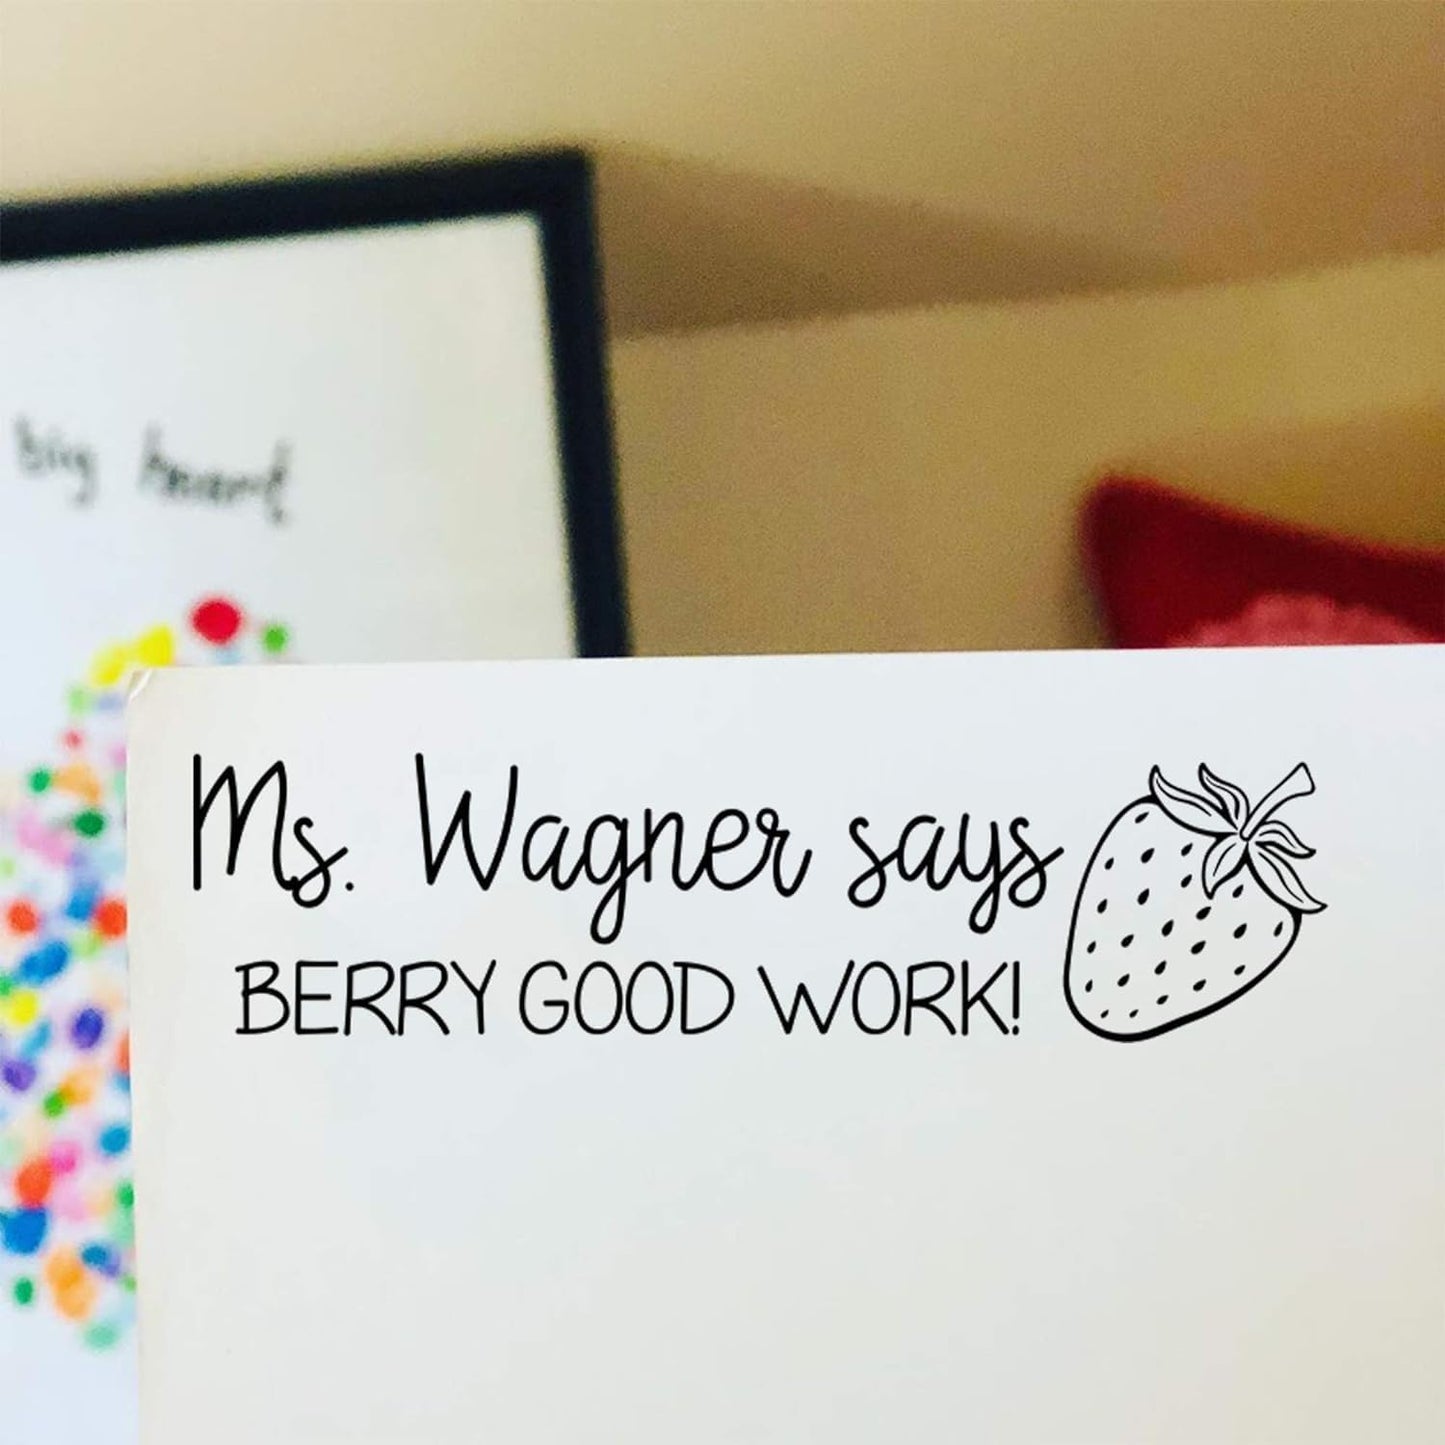 big heart
Ms. Wagner says
BERRY GOOD WORK!